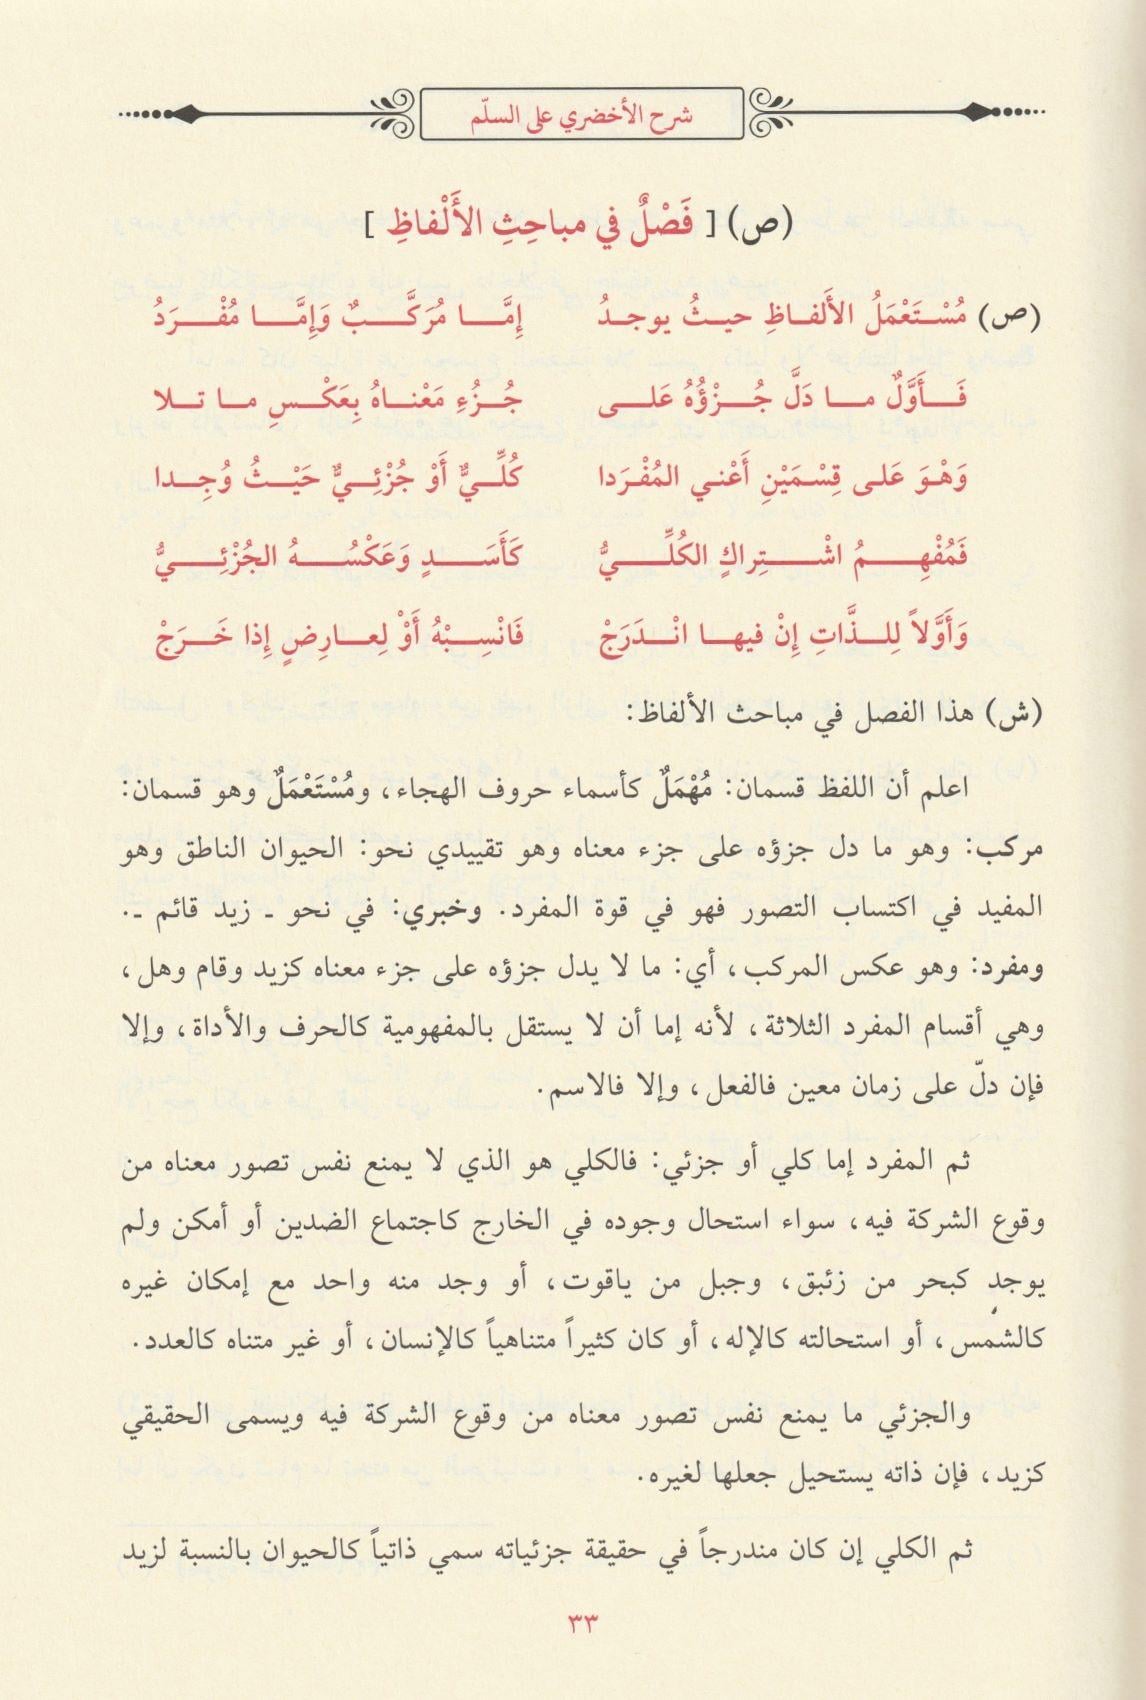 شرح الأخضري على السلّم
(ص) [ فَصْلٌ في مباحِثِ الأَلْفاظِ ]
(ص) مُسْتَعْمَلُ الأَلفاظِ حيثُ يوجدُ إِمَّا مُرَكَّبٌ وَإِمَّا مُفْرَدُ
فَأَوَّلٌ ما دَلَّ جُزْؤُهُ عَلى جُزُءِ مَعْناهُ بِعَكْسِ ما تلا
وَهْوَ عَلى قِسْمَيْنِ أَعْني المُفْرَدا كُلِّيٌّ أَوْ جُزْئِيٌّ حَيْثُ وُجِدا
فَمُفْهِمُ اشْتِراكٍ الكُلِّيُّ كَأَسَدٍ وَعَكْسُهُ الجُزْئِيُّ
وَأَوَّلاً لِلذَّاتِ إِنْ فيها انْدَرَجْ فَانْسِبْهُ أَوْ لِعارِضٍ إِذا خَرَجْ
(ش) هذا الفصل في مباحث الألفاظ:
اعلم أن اللفظ قسمان: مُهْمَلٌ كأسماء حروف الهجاء، ومُسْتَعْمَلٌ وهو قسمان:
مركب: وهو ما دل جزؤه على جزء معناه وهو تقييدي نحو: الحيوان الناطق وهو
المفيد في اكتساب التصور فهو في قوة المفرد. وخبري: في نحو ـ زيد قائم ـ.
ومفرد: وهو عكس المركب، أي: ما لا يدل جزؤه على جزء معناه كزيد وقام وهل،
وهي أقسام المفرد الثلاثة، لأنه إما أن لا يستقل بالمفهومية كالحرف والأداة، وإلا
فإن دلّ على زمان معين فالفعل، وإلا فالاسم.
ثم المفرد إما كلي أو جزئي: فالكلي هو الذي لا يمنع نفس تصور معناه من
وقوع الشركة فيه، سواء استحال وجوده في الخارج كاجتماع الضدين أو أمكن ولم
يوجد كبحر من زئبق، وجبل من ياقوت، أو وجد منه واحد مع إمكان غيره
كالشمس، أو استحالته كالإله، أو كان كثيراً متناهياً كالإنسان، أو غير متناه كالعدد.
والجزئي ما يمنع نفس تصور معناه من وقوع الشركة فيه ويسمى الحقيقي
كزيد، فإن ذاته يستحيل جعلها لغيره.
ثم الكلي إن كان مندرجاً في حقيقة جزئياته سمي ذاتياً كالحيوان بالنسبة لزيد
٣٣